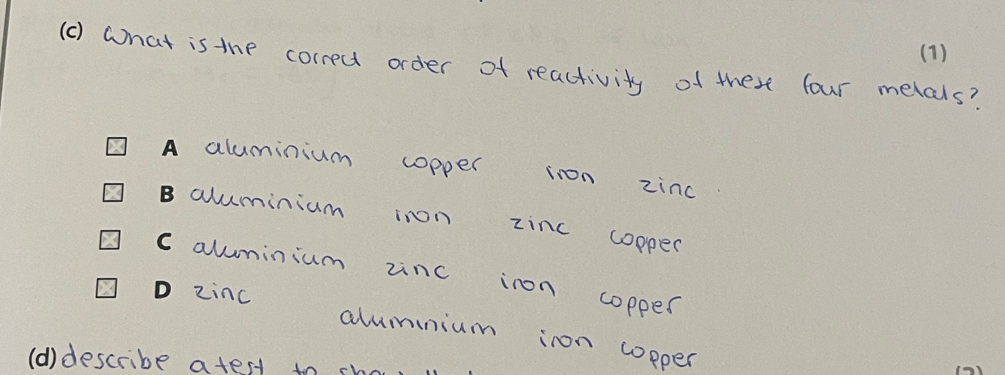 (c) What is the correct order of reactivity of these four metals?
(1)
A aluminium copper iron zinc
B aluminium iron zinc copper
C aluminium zinc iron copper
D zinc aluminium iron copper
(d) describe a test to